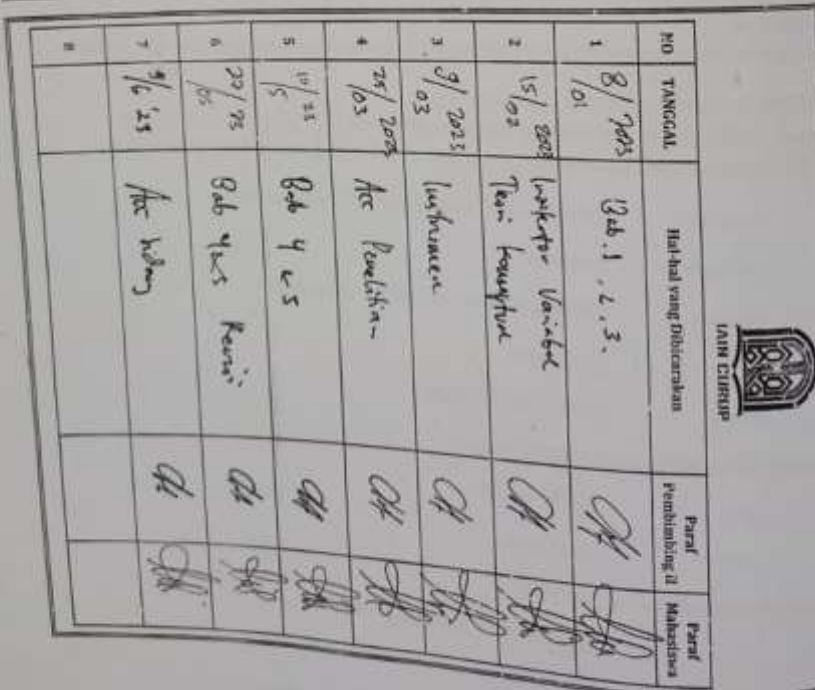 IAIN CURUP
NO TANGGAL Hal-hal yang Dibicarakan Paraf Pembimbing II Paraf Mahasiswa
1 8/01 2023 Bab. 1, 2, 3.
2 15/02 2023 Indikator Variabel
Teori
3 9/03 2023 Instrumen
4 21/03 2023 Acc Penelitian
5 5 23 Bab 4 & 5
6 22/05 23 Bab 4 & 5 Revisi
7 9/6 '23 Acc Sidang
8